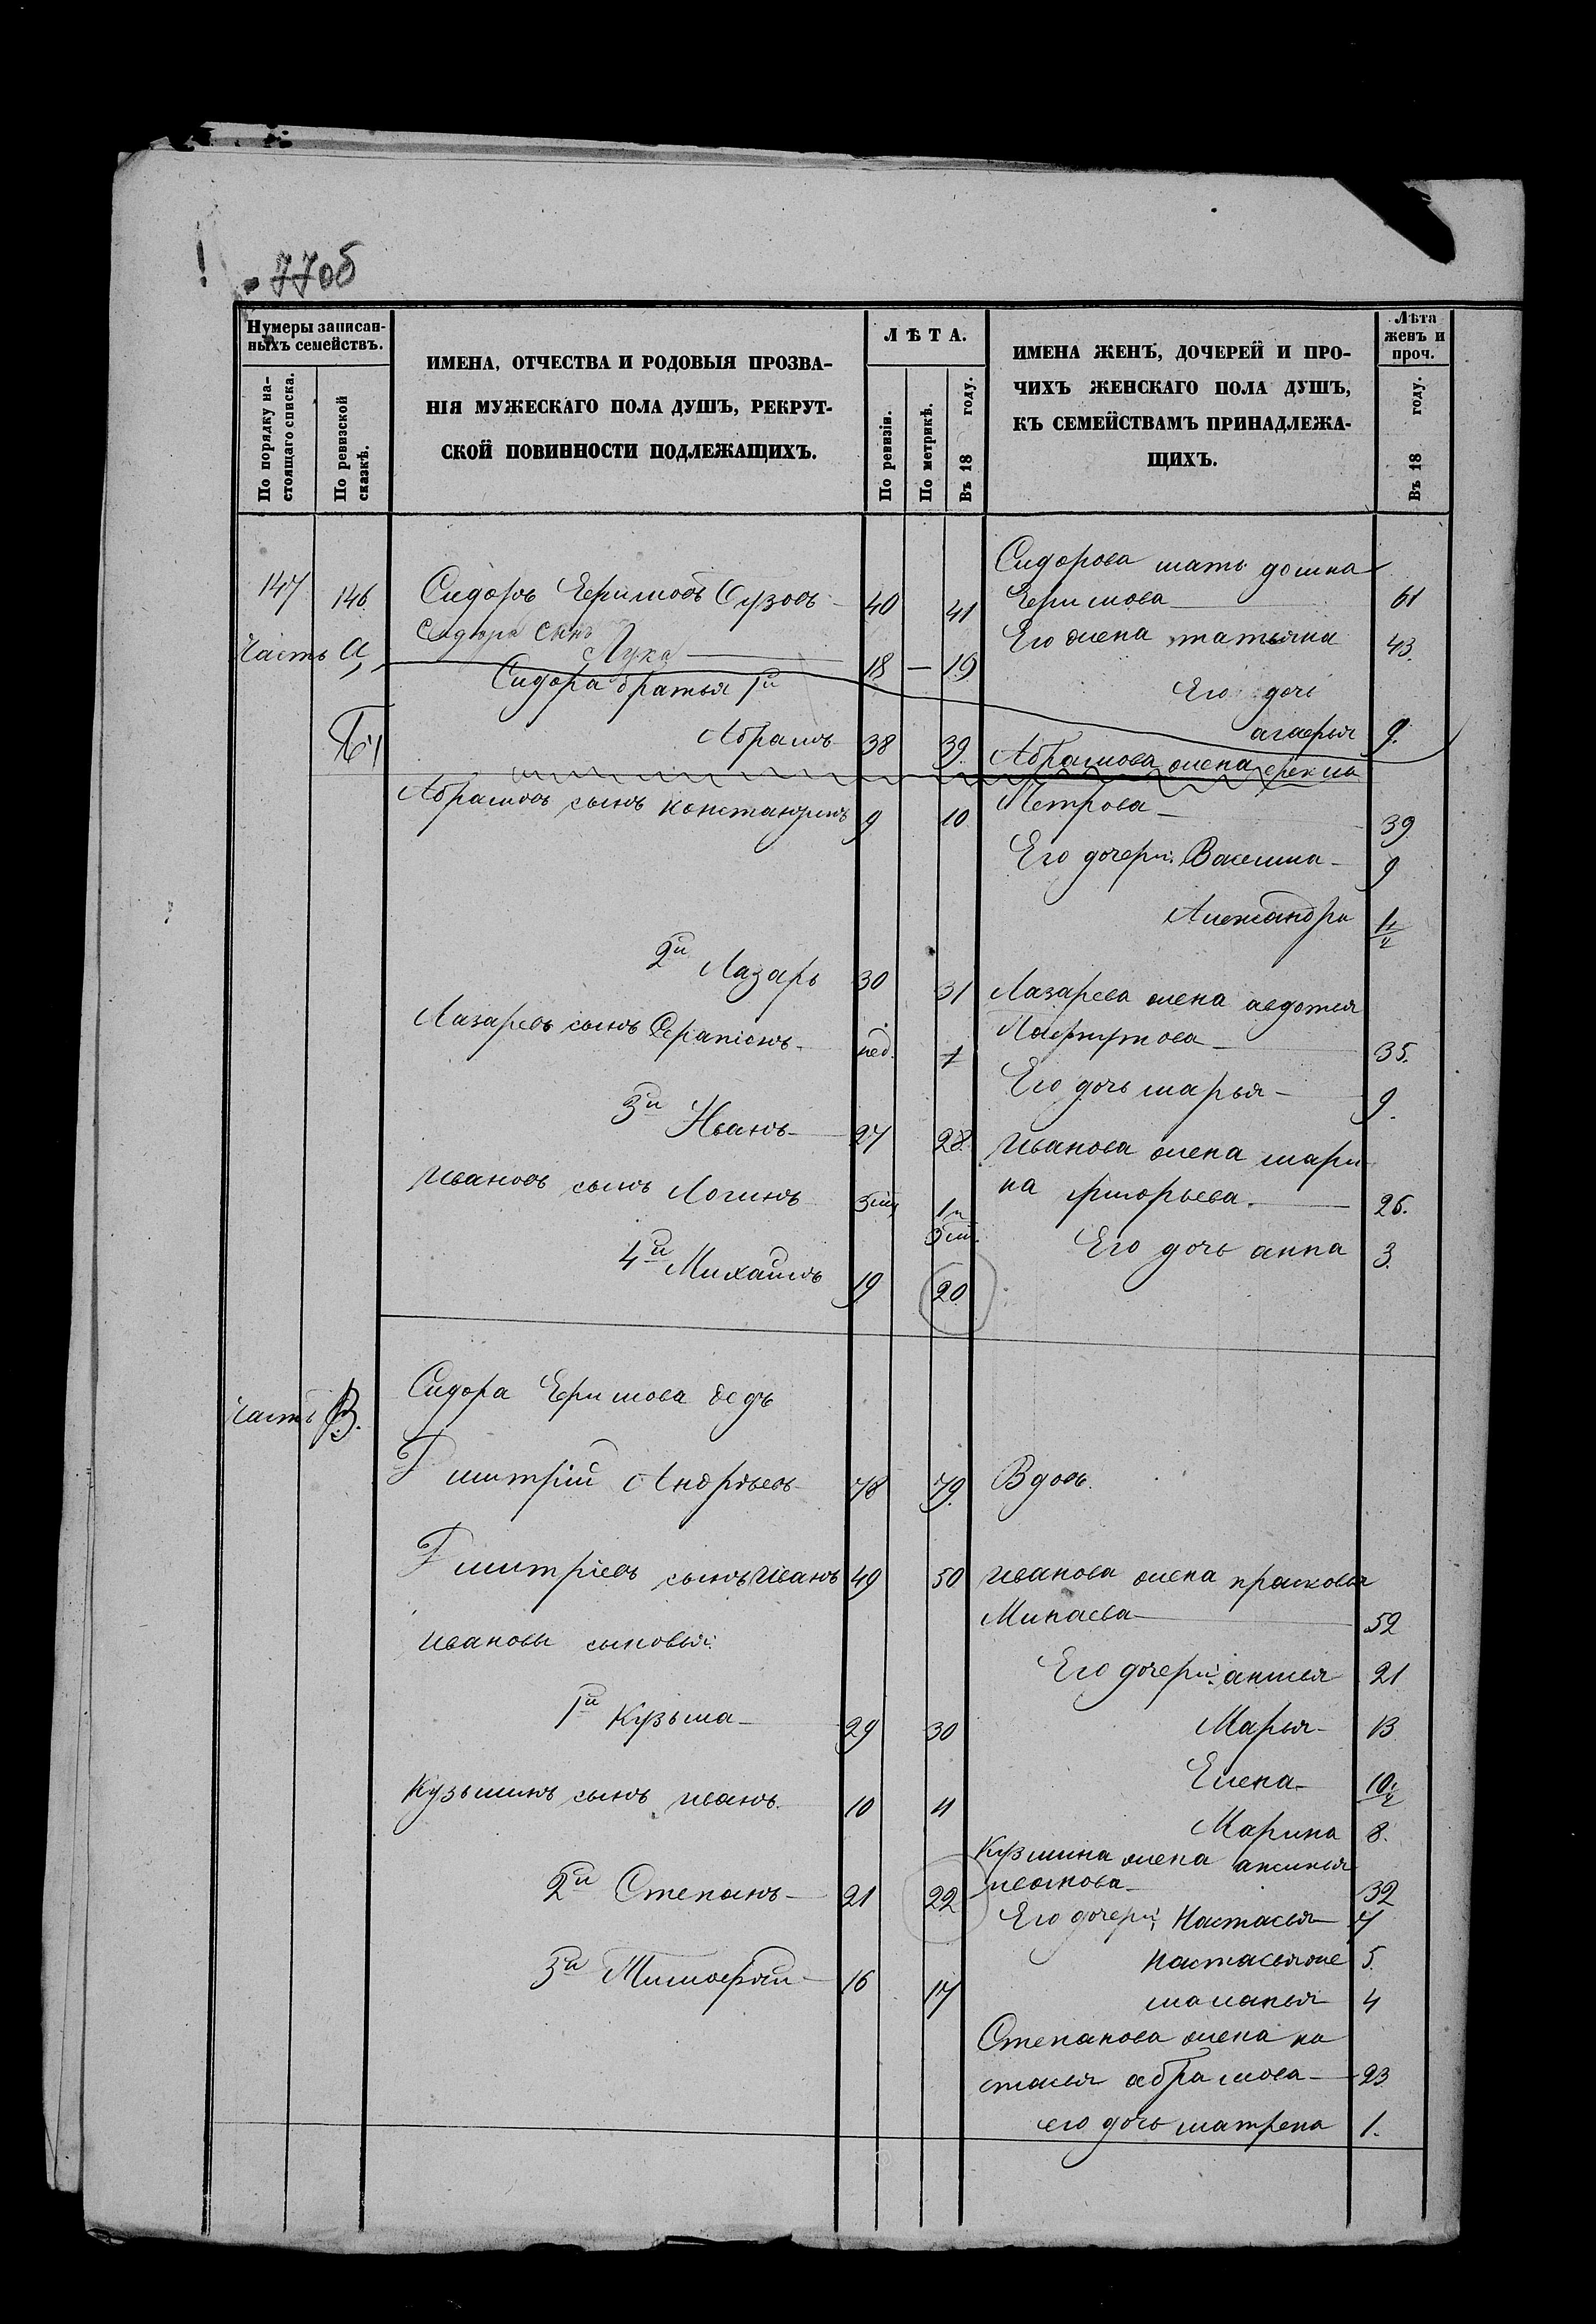 77об
Нумеры записан-
ныхъ семействъ.
По порядку на-
стоящаго списка.
По ревизской
сказкѣ.
ИМЕНА, ОТЧЕСТВА И РОДОВЫЯ ПРОЗВА-
НІЯ МУЖЕСКАГО ПОЛА ДУШЪ, РЕКРУТ-
СКОЙ ПОВИННОСТИ ПОДЛЕЖАЩИХЪ.
ЛѢТА.
По ревизіи.
По метрикѣ.
Въ 18 году.
ИМЕНА ЖЕНЪ, ДОЧЕРЕЙ И ПРО-
ЧИХЪ ЖЕНСКАГО ПОЛА ДУШЪ,
КЪ СЕМЕЙСТВАМЪ ПРИНАДЛЕЖА-
ЩИХЪ.
Лѣта
женъ и
проч.
Въ 18 году.
Сидорова мать домна
147 146 Сидоръ Ефимовъ 40 41 Ефимова 61
Сидора сынъ
Часть а, Лука 18 — 19 Его жена татьяна 43.
Сидора братья 1й Его дочь
Абрамъ 38 39. агафья 9.
Абрамова жена фекла
Абрамовъ сынъ константинъ 9 10 Петрова 39
Его дочери: Василиса 9
Александра
2й Лазарь 30 31 Лазарева жена авдотья
Лазаревъ сынъ Серапіонъ нед. 1 35.
Его дочь марья 9.
3й Иванъ 27 28. Иванова жена мари
Ивановъ сынъ Логинъ на григорьева. 26.
4й Михаилъ 19 20 Его дочь анна 3.
Часть В. Сидора Ефимова дедъ
Дмитрій Андрѣевъ 78 79. Вдовъ.
Дмитріевъ сынъ Иванъ 49 50 Иванова жена прасковья
Минаева 52
Ивановы сыновья:
Его дочери: анисья 21
1й Кузьма 29 30 Марья 13
Елена
Кузьминъ сынъ иванъ 10 11 Марина 8.
Кузмина жена аксинья
2й Степанъ 21 22 иванова 32
Его дочери: Настасья 7
3й Тимофѣй 16 17 настасья же 5.
маланья 4
Степанова жена на
стасья абрамова 23
его дочь матрена 1.